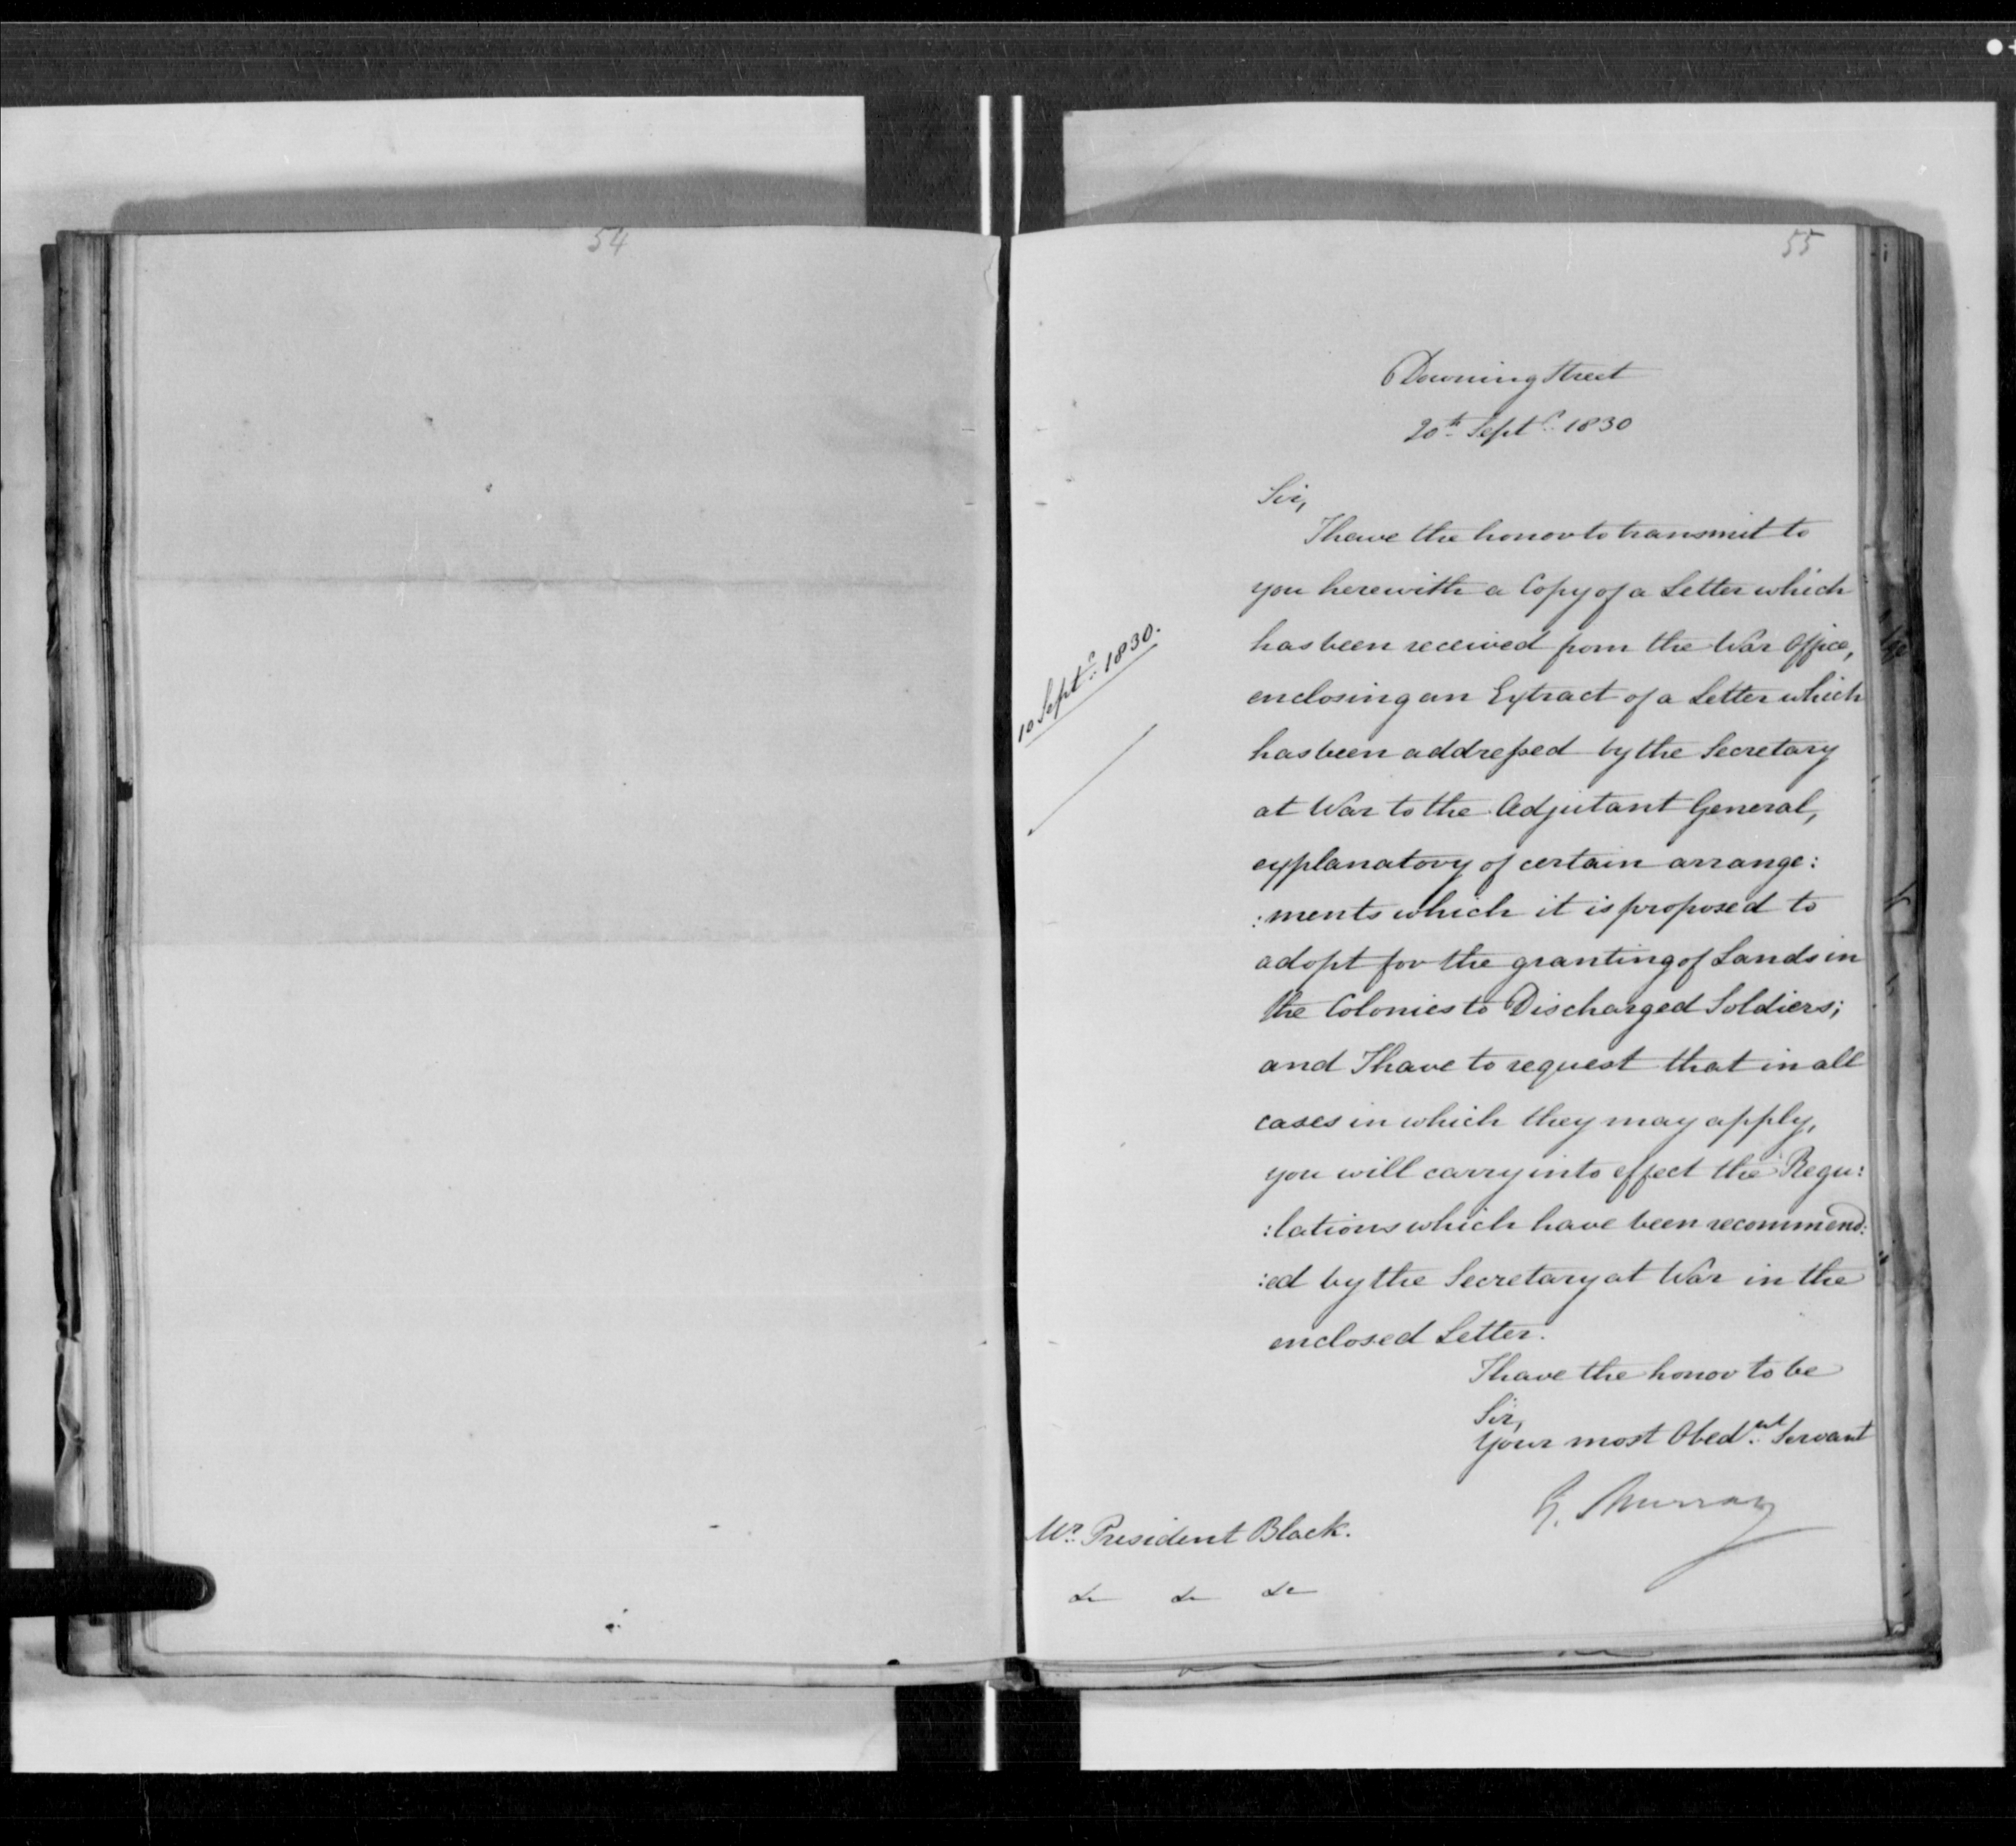 54
55
Downing Street
20th Septr. 1830
Sir,
I have the honor to transmit to
you herewith a Copy of a Letter which
has been received from the War Office,
10 Septr. 1830.
enclosing an Extract of a Letter which
has been addressed by the Secretary
at War to the Adjutant General,
explanatory of certain arrange:
:ments which it is proposed to
adopt for the granting of Lands in
the Colonies to Discharged Soldiers;
and I have to request that in all
cases in which they may apply,
you will carry into effect the Regu:
:lations which have been recommend:
:ed by the Secretary at War in the
enclosed Letter.
I have the honor to be
Sir,
Your most Obednt. Servant
G. Murray
Mr. President Black.
&c &c &c